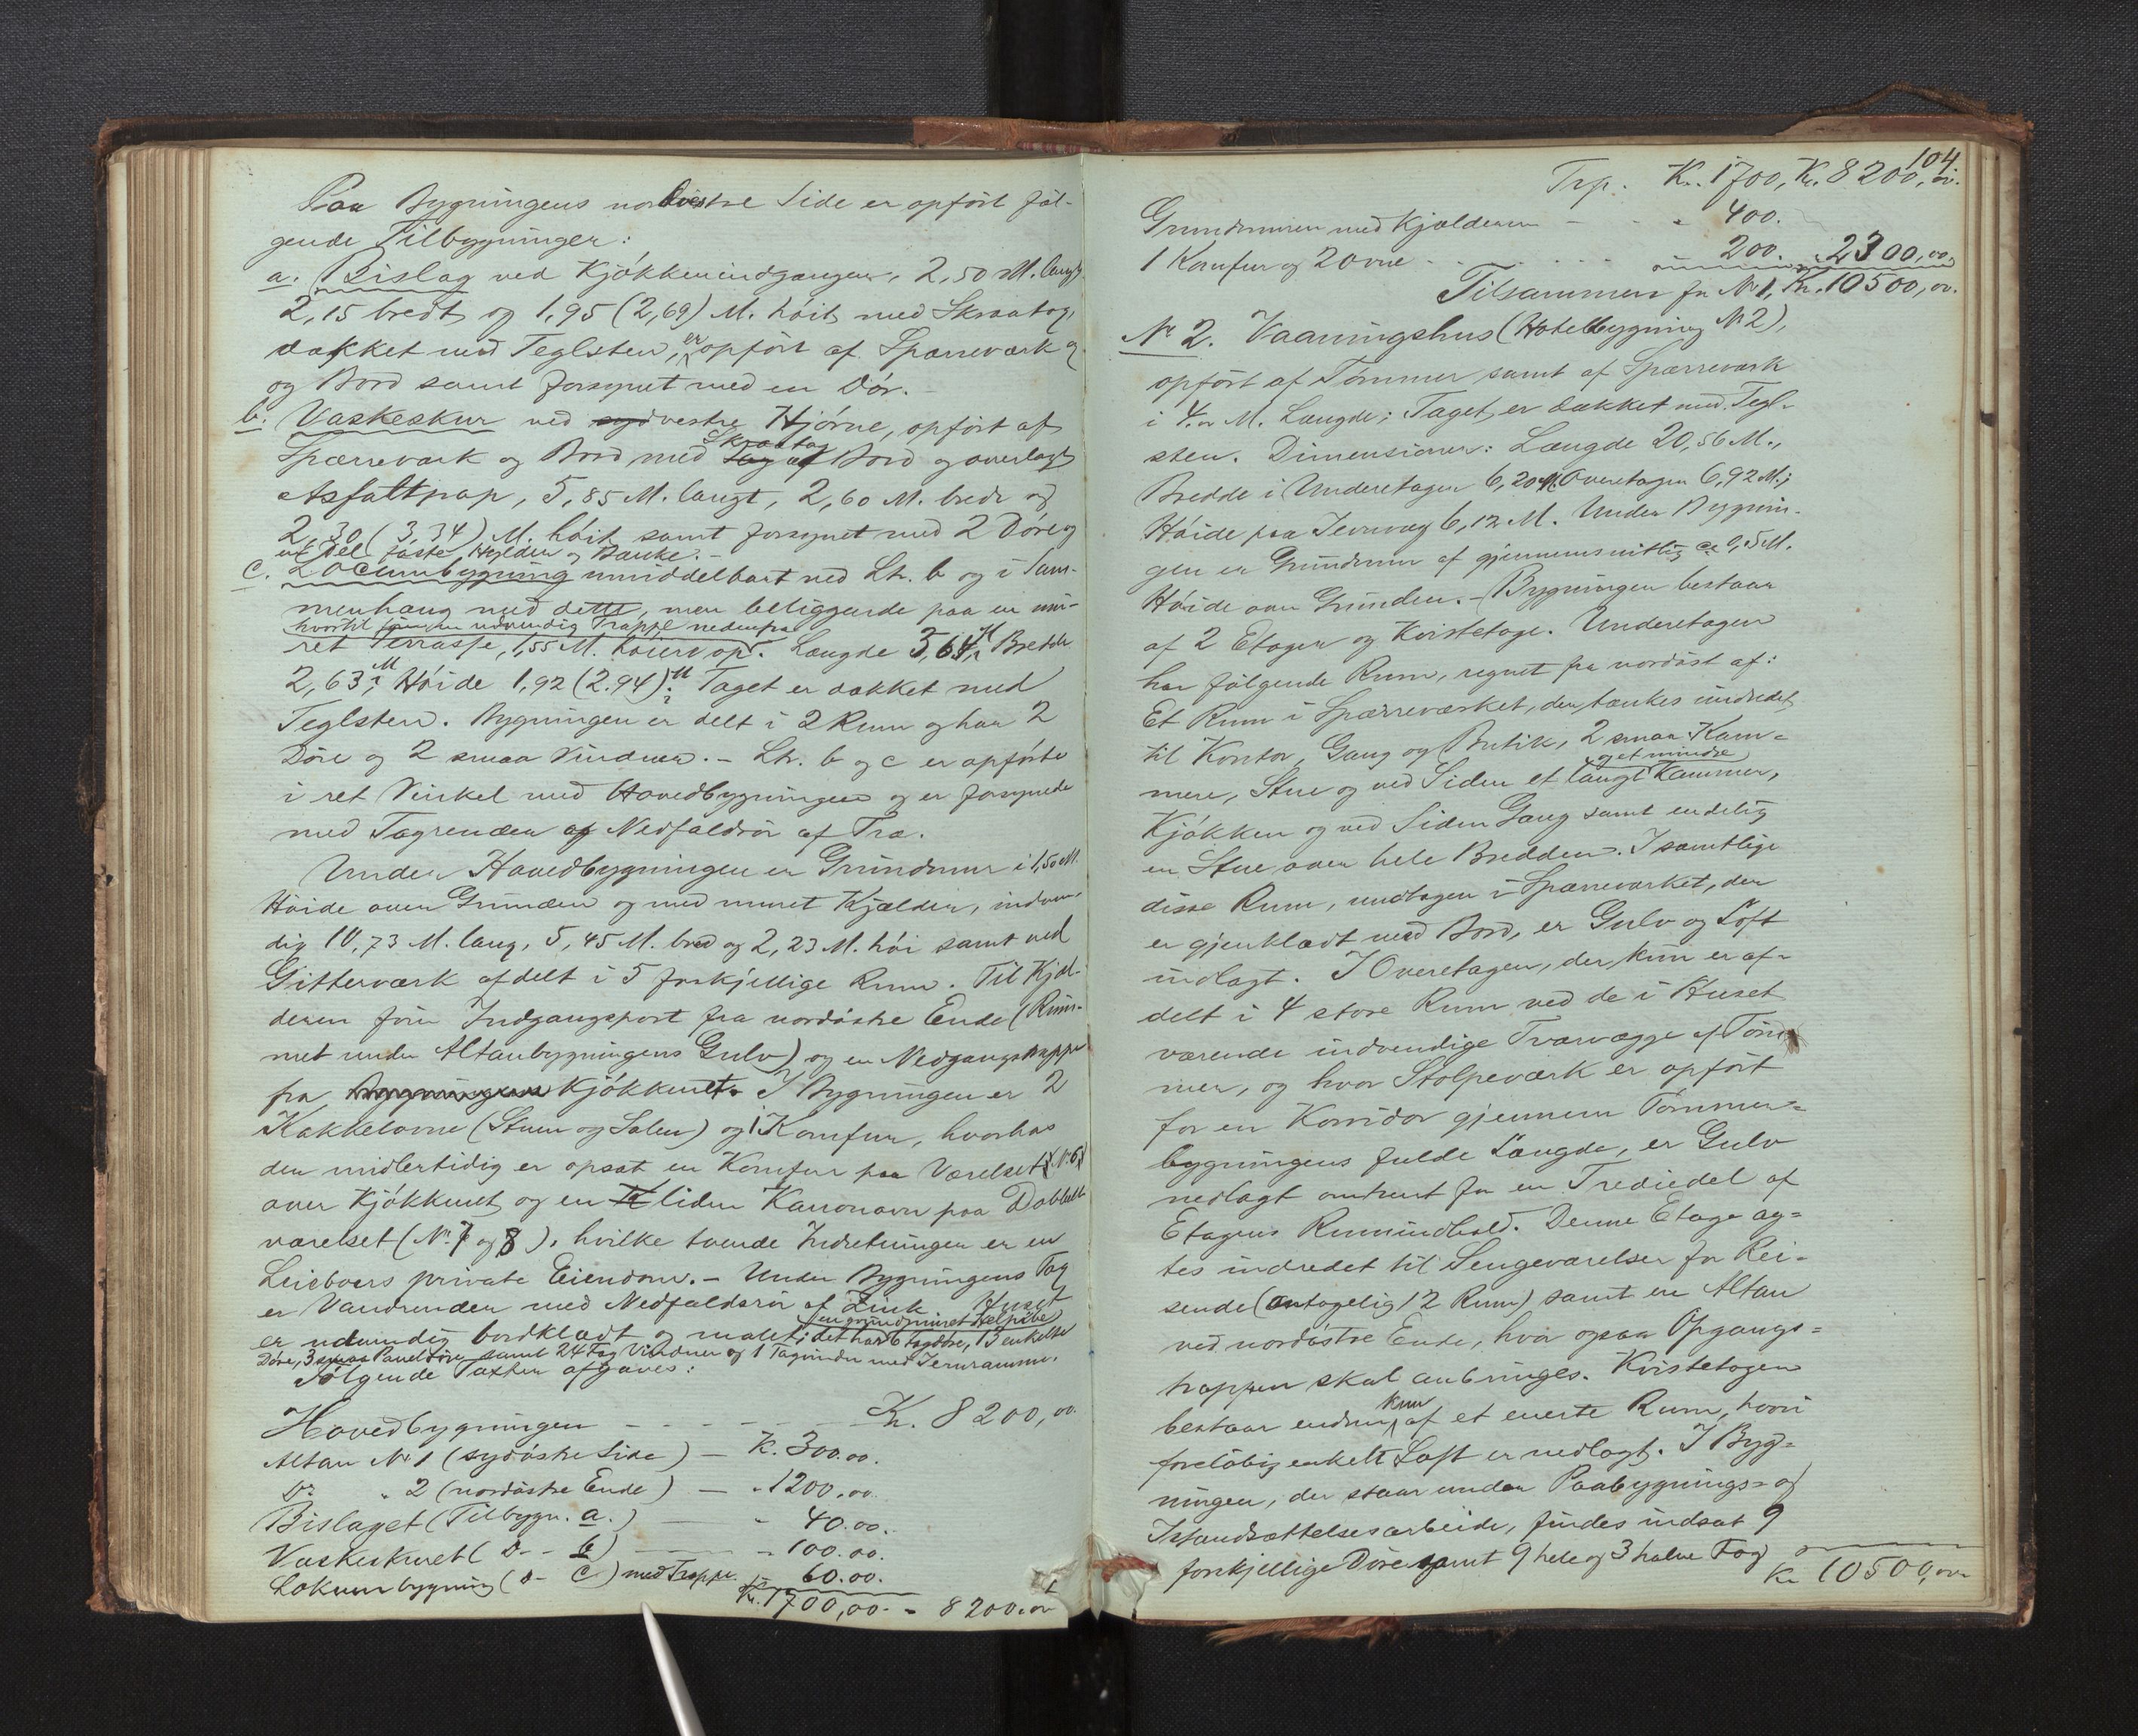 Paa Bygningens nordvestre Side er opført føl-
gende Tilbygninger:
a. Bislag ved Kjøkkenindgangen, 2,50 M. langt
2,15 bredt og 1,95 (2,69) M. høit med Skraatag,
dækket med Teglsten, er opført af Sparreværk og
og Bord samt forsynet med en Dør. -
b. Vaskeskur ved sydvestre Hjørne, opført af
Skraatag
Sparreværk og Bord med Tag af Bord og overlagt
Asfaltpap, 5,85 M. langt, 2,60 M. bredt og
2,30 (3,34) M. høit samt forsynet med 2 Døre og
en Del faste Hylder og Bænke. -
c. Locumbygning umiddelbart ved Ltr. b og i Sam-
menhæng med dette, men beliggende paa en mu-
hvortil fører en udvendig Trappe nedenfra
ret Terrasse, 1,55 M. høiere op. Længde 3,64 M, Bredde
2,63 M, Høide 1,92 (2.94) M. Taget er dækket med
Teglsten. Bygningen er delt i 2 Rum og har 2
Døre og 2 smaa Vinduer. - Ltr. b og c er opførte
i ret Vinkel med Hovedbygningen og er forsynede
med Tagrender og Nedfaldsrør af Træ.
Under Hovedbygningen er Grundmur i 1,50 M.
Høide over Grunden og med muret Kjælder, indven-
dig 10,73 M. lang, 5,45 M. bred og 2,23 M. høi samt ved
Gitterværk afdelt i 5 forskjellige Rum. Til Kjæl-
deren fører Indgangsport fra nordøstre Ende (Rum-
met under Altanbygningens Gulv) og en Nedgangstrappe
fra Bygningens Kjøkkenet. I Bygningen er 2
Kakkelovne (Stuen og Salen) og 1 Komfur, hvorhos
der midlertidig er opsat en Komfur paa Værelset (N. 6)
over Kjøkkenet og en liden Kanonovn paa Dobbelt-
værelset (No 7 og 8), hvilke tvende Indretninger er en
Leieboers private Eiendom. - Under Bygningens Tag
er Vandrender med Nedfaldsrør af Zink. Huset
en grundmuret Helpibe
er udvendig bordklædt og malet; det har 6 Fagdøre, 13 enkelte
Døre, 3 smaa Paneldøre samt 24 Fag Vinduer og 1 Tagvindu med Jernramme.
Følgende Taxter afgaves:
Hovedbygningen - - - - - - Kr. 8200,00.
Altan No 1 (sydøstre Side) - Kr. 300.00.
Do " 2 (nordøstre Ende) - " 1200,00.
Bislaget (Tilbygn. a.) - " 40.00.
Vaskeskuret (D- - b) - " 100.00.
Lokumbygning (D- c) med Trappe. " 60.00.
Kr. 1700,00 - " 8200.00
104.
Trp. Kr. 1700, Kr. 8200,00.
Grundmuren med Kjælderen - - " 400.
1 Komfur og 2 Ovne - - - - - 200. " 2300,00,
Tilsammen for No 1, Kr. 10500,00.
No 2. Vaaningshus (Hotelbygning No 2),
opført af Tømmer samt af Sparreværk
i 4.00 M. Længde; Taget er dækket med Tegl-
sten. Dimensioner: Længde 20,56 M.,
Bredde i Underetagen 6,20 M. Overetagen 6,92 M.;
Høide paa Jevnvæg 6,12 M. Under Bygnin-
gen er Grundmur af gjennemsnitlig ca 0,5 M.
Høide over Grunden. - Bygningen bestaar
af 2 Etager og Kvistetage. Underetagen
har følgende Rum, regnet fra nordøst af:
Et Rum i Sparreværket, der tænkes indredet
til Kontor, Gang og Butik, 2 smaa Kam-
og et mindre
mere, Stue og ved Siden et langt Kammer,
Kjøkken og ved Siden Gang samt endelig
en Stue over hele Bredden. I samtlige
disse Rum, undtagen i Sparreværket, der
er gjenklædt med Bord, er Gulv og Loft
indlagt. I Overetagen, der kun er af-
delt i 4 store Rum ved de i Huset
værende indvendige Tværvægge af Tøm-
mer, og hvor Stolpeværk er opført
for en Korridor gjennem Tømmer-
bygningens fulde Længde, er Gulv
nedlagt omtrent for en Trediedel af
Etagens Rumindhold. Denne Etage ag-
tes indredet til Sengeværelser for Rei-
sende (antagelig 12 Rum) samt en Altan
ved nordøstre Ende, hvor ogsaa Opgangs-
trappen skal anbringes. Kvistetagen
kun
bestaar endnu af et eneste Rum, hvori
foreløbig enkelt Loft er nedlagt. I Byg-
ningen, der staar under Paabygnings- og
Istandsættelsesarbeide, findes indsat 9
forskjellige Døre samt 9 hele og 3 halve Fag
Kr 10500,00